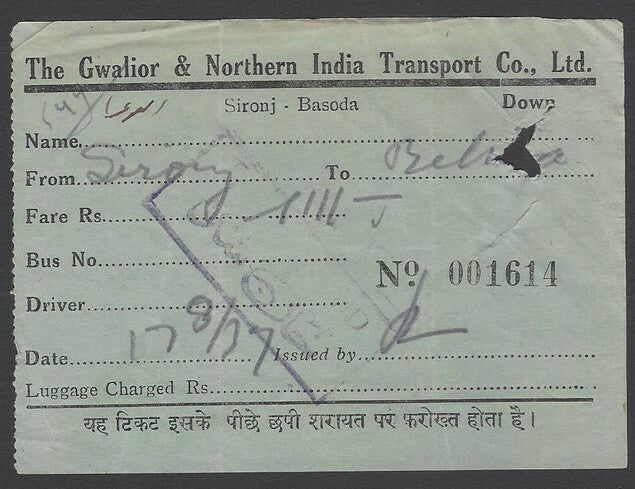 The Gwalior & Northern India Transport Co., Ltd.
Sironj - Basoda Down
Name
From Sironj To
Fare Rs
Bus No.
Nº 001614
Driver
Date 17/8/37 Issued by
Luggage Charged Rs
यह टिकट इसके पीछे छपी शरायत पर फ़रोख्त होता है।